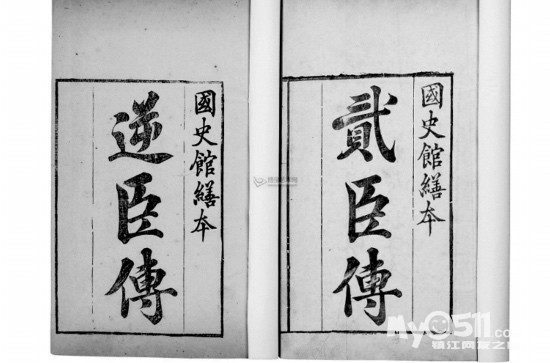 國史館繕本
貳臣傳
國史館繕本
逆臣傳
My0511.com
镇江网友之家